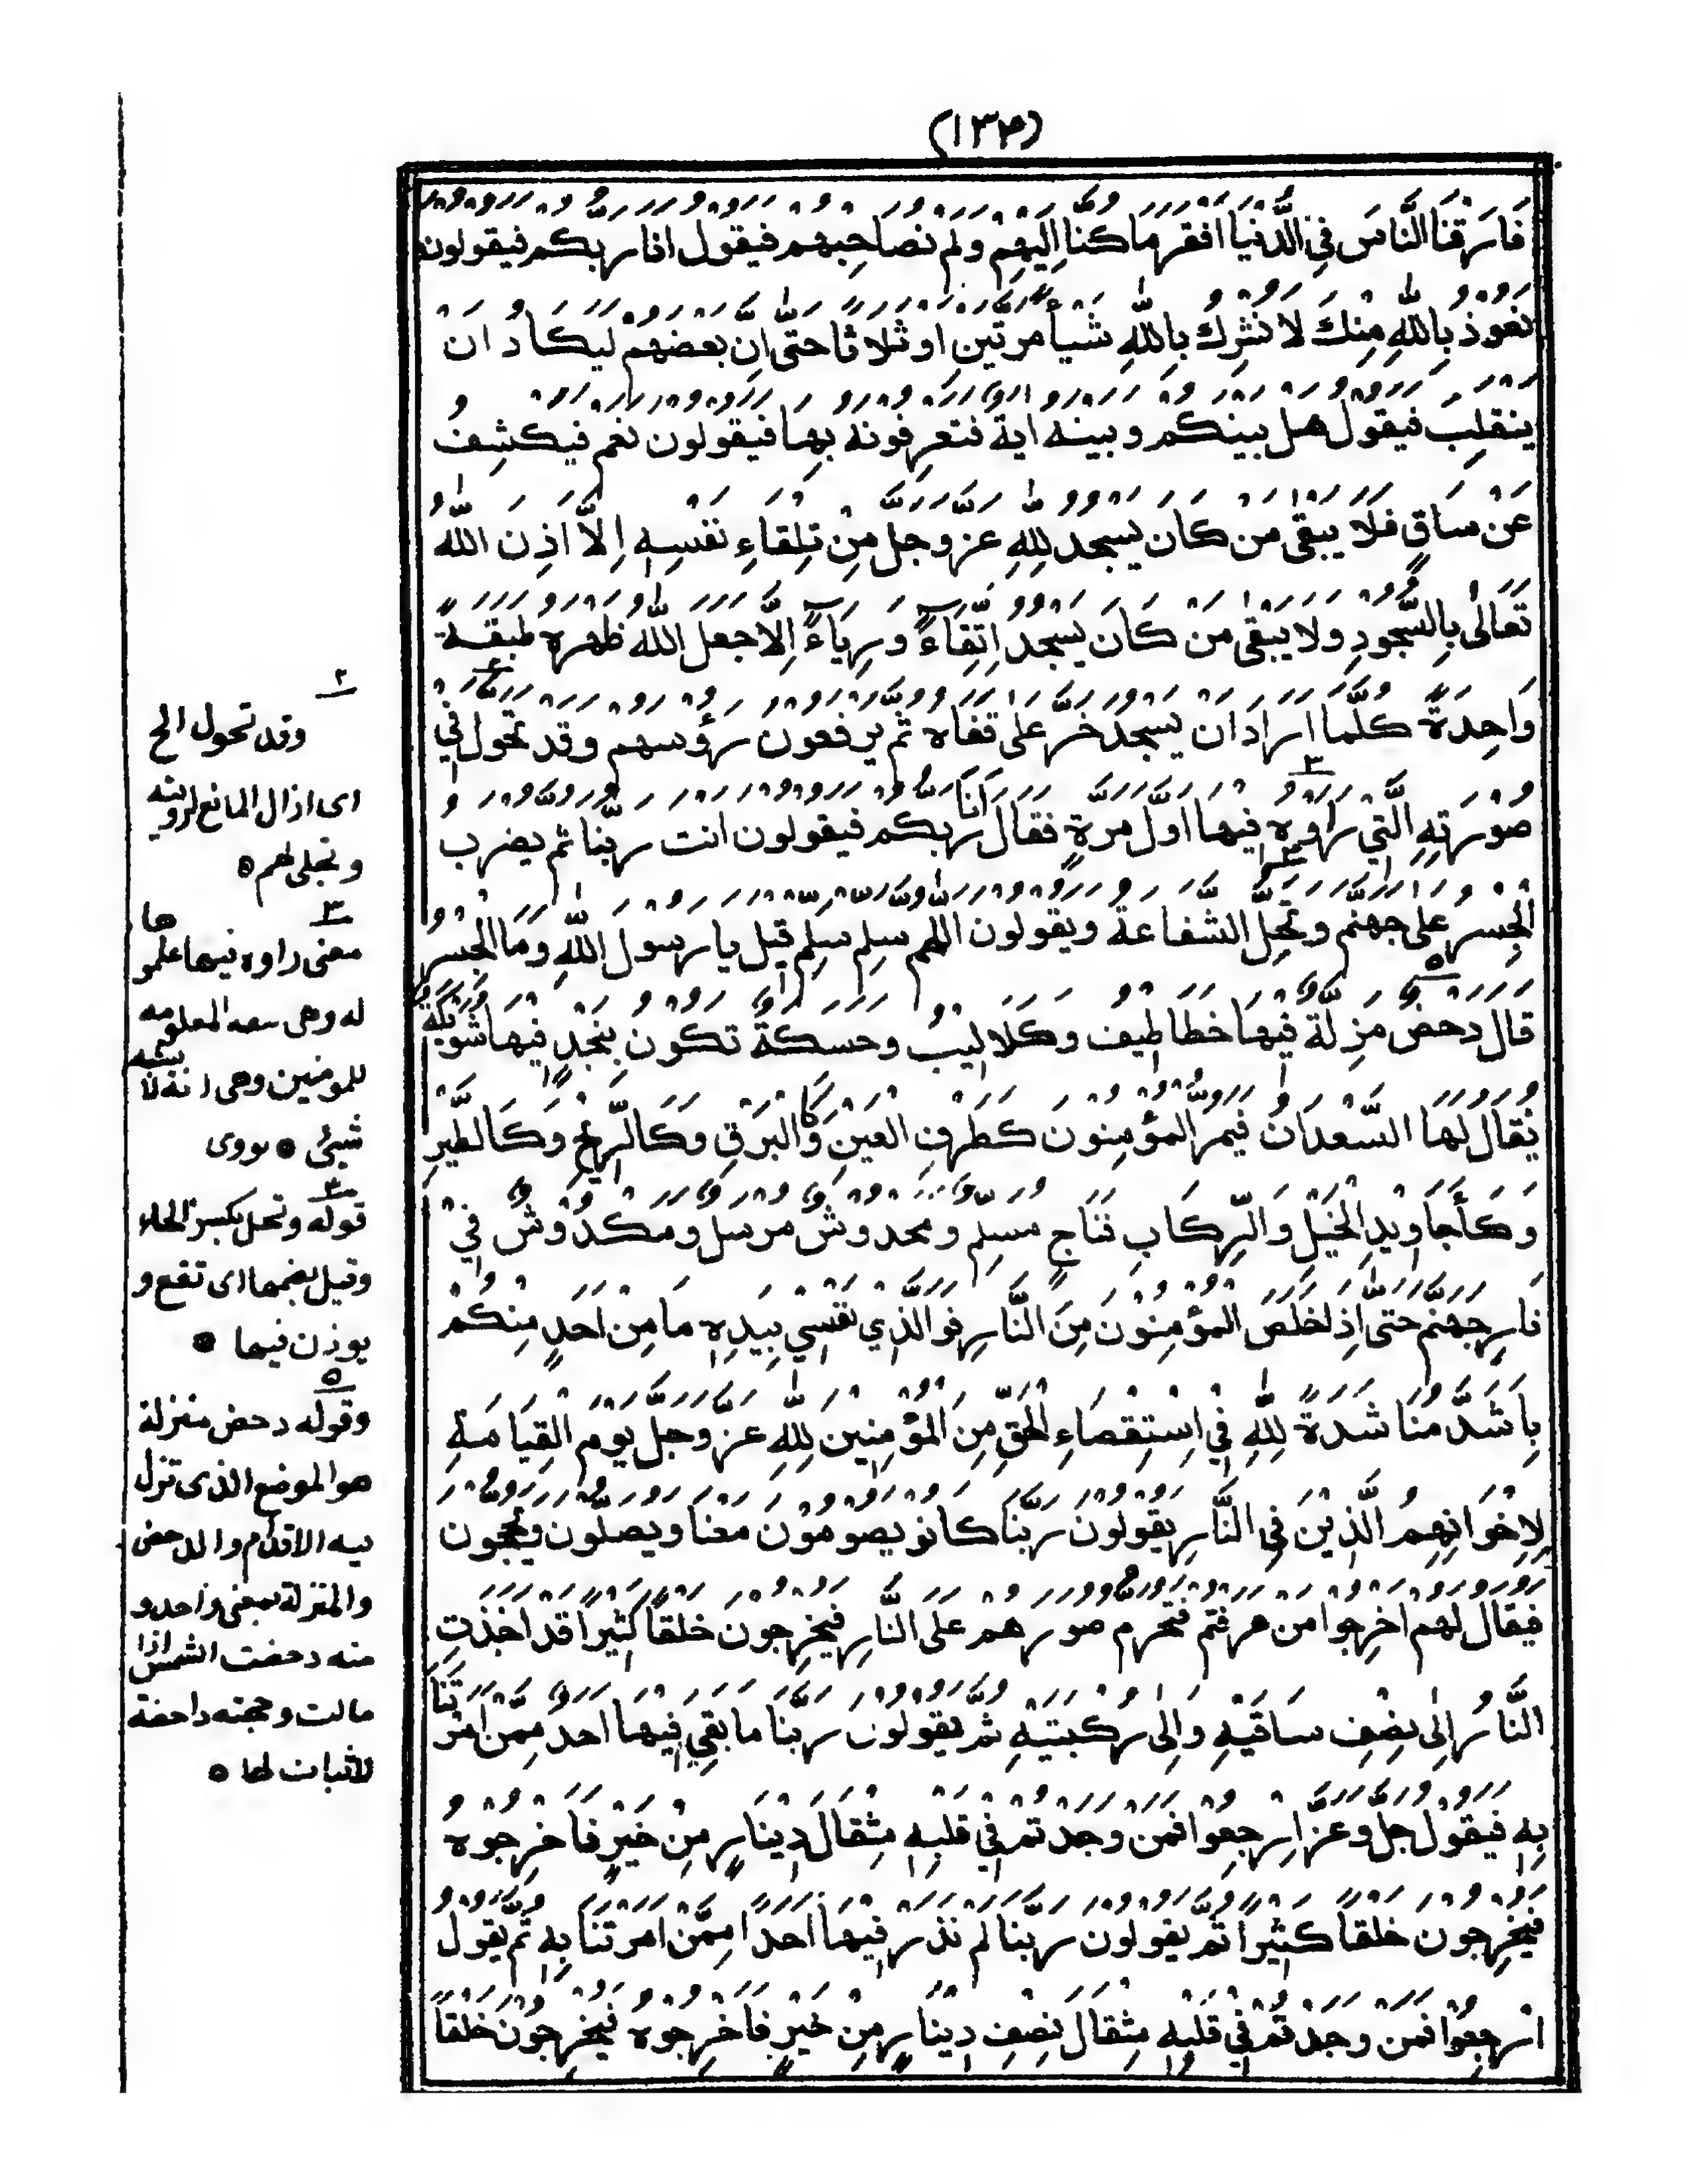 (١٣٤)
فَارَقْنَا النَّاسَ فِي الدُّنْيَا اَفْقَرَ مَا كُنَّا اِلَيْهِمْ وَلَمْ نُصَاحِبْهُمْ فَيَقُولُ اَنَا رَبُّكُمْ فَيَقُولُونَ
نَعُوذُ بِاللّٰهِ مِنْكَ لَا نُشْرِكُ بِاللّٰهِ شَيْأً مَرَّتَيْنِ اَوْ ثَلَاثًا حَتّٰى اِنَّ بَعْضَهُمْ لَيَكَادُ اَنْ
يَنْقَلِبَ فَيَقُولُ هَلْ بَيْنَكُمْ وَبَيْنَهُ اٰيَةٌ فَتَعْرِفُونَهُ بِهَا فَيَقُولُونَ نَعَمْ فَيَكْشِفُ
عَنْ سَاقٍ فَلَا يَبْقٰى مَنْ كَانَ يَسْجُدُ لِلّٰهِ عَزَّ وَجَلَّ مِنْ تِلْقَاءِ نَفْسِهِ اِلَّا اَذِنَ اللّٰهُ
تَعَالٰى بِالسُّجُودِ وَلَا يَبْقٰى مَنْ كَانَ يَسْجُدُ اِتِّقَاءً وَرِيَاءً اِلَّا جَعَلَ اللّٰهُ ظَهْرَهُ طَبَقَةً
وَاحِدَةً كُلَّمَا اَرَادَ اَنْ يَسْجُدَ خَرَّ عَلٰى قَفَاهُ ثُمَّ يَرْفَعُونَ رُؤُسَهُمْ وَقَدْ تَحَوَّلَ فِي
صُوْرَتِهِ الَّتِي رَاَوْهُ فِيْهَا اَوَّلَ مَرَّةٍ فَقَالَ اَنَا رَبُّكُمْ فَيَقُولُونَ اَنْتَ رَبُّنَا ثُمَّ يُضْرَبُ
الْجِسْرُ عَلٰى جَهَنَّمَ وَتَحِلُّ الشَّفَاعَةُ وَيَقُولُونَ اللّٰهُمَّ سَلِّمْ سَلِّمْ قِيْلَ يَا رَسُولَ اللّٰهِ وَمَا الْجِسْرُ
قَالَ دَحْضٌ مَزِلَّةٌ فِيْهَا خَطَاطِيْفُ وَكَلَالِيْبُ وَحَسَكَةٌ تَكُوْنُ بِنَجْدٍ فِيْهَا شُوَيْكَةٌ
يُقَالُ لَهَا السَّعْدَانُ فَيَمُرُّ الْمُؤْمِنُوْنَ كَطَرْفِ الْعَيْنِ وَكَالْبَرْقِ وَكَالرِّيْحِ وَكَالطَّيْرِ
وَكَأَجَاوِيْدِ الْخَيْلِ وَالرِّكَابِ فَنَاجٍ مُسَلَّمٌ وَمَخْدُوشٌ مُرْسَلٌ وَمَكْدُوْشٌ فِيْ
نَارِ جَهَنَّمَ حَتّٰى اِذَا خَلَصَ الْمُؤْمِنُوْنَ مِنَ النَّارِ فَوَالَّذِي نَفْسِي بِيَدِهِ مَا مِنْ اَحَدٍ مِنْكُمْ
بِاَشَدَّ مُنَاشَدَةً لِلّٰهِ فِي اِسْتِقْصَاءِ الْحَقِّ مِنَ الْمُؤْمِنِيْنَ لِلّٰهِ عَزَّ وَجَلَّ يَوْمَ الْقِيَامَةِ
لِاِخْوَانِهِمُ الَّذِيْنَ فِي النَّارِ يَقُوْلُوْنَ رَبَّنَا كَانُوْ يَصُوْمُوْنَ مَعَنَا وَيُصَلُّوْنَ وَيَحُجُّوْنَ
فَيُقَالُ لَهُمْ اَخْرِجُوْا مَنْ عَرَفْتُمْ فَتُحَرَّمُ صُوَرُهُمْ عَلَى النَّارِ فَيُخْرِجُوْنَ خَلْقًا كَثِيْرًا قَدْ اَخَذَتِ
النَّارُ اِلٰى نِصْفِ سَاقَيْهِ وَاِلٰى رُكْبَتَيْهِ ثُمَّ يَقُوْلُوْنَ رَبَّنَا مَا بَقِيَ فِيْهَا اَحَدٌ مِمَّنْ اَمَرْتَنَا
بِهِ فَيَقُوْلُ جَلَّ وَعَزَّ اِرْجِعُوْا فَمَنْ وَجَدْتُمْ فِي قَلْبِهِ مِثْقَالَ دِيْنَارٍ مِنْ خَيْرٍ فَاَخْرِجُوْهُ
فَيُخْرِجُوْنَ خَلْقًا كَثِيْرًا ثُمَّ يَقُوْلُوْنَ رَبَّنَا لَمْ نَذَرْ فِيْهَا اَحَدًا مِمَّنْ اَمَرْتَنَا بِهِ ثُمَّ يَقُوْلُ
ارْجِعُوْا فَمَنْ وَجَدْتُمْ فِي قَلْبِهِ مِثْقَالَ نِصْفِ دِيْنَارٍ مِنْ خَيْرٍ فَاَخْرِجُوْهُ فَيُخْرِجُوْنَ خَلْقًا
٢
وقد تحول الخ
اى ازال المانع لرؤيته
وتجلى لهم
٣
معنى راوه فيها علموها
له وهى صفته المعلومه
للمومنين وهى انه لا يشبه
شيئ نووى
٤
قوله وتحل بكسر الحاء
وقيل بضمها اى تقع و
يوذن فيها
٥
وقوله دحض منزلة
هو الموضع الذى تزل
فيه الاقدام والدحض
والمنزلة بمعنى واحد و
منه دحضت الشمس اذا
مالت وحجته داحضة
لاثبات لها